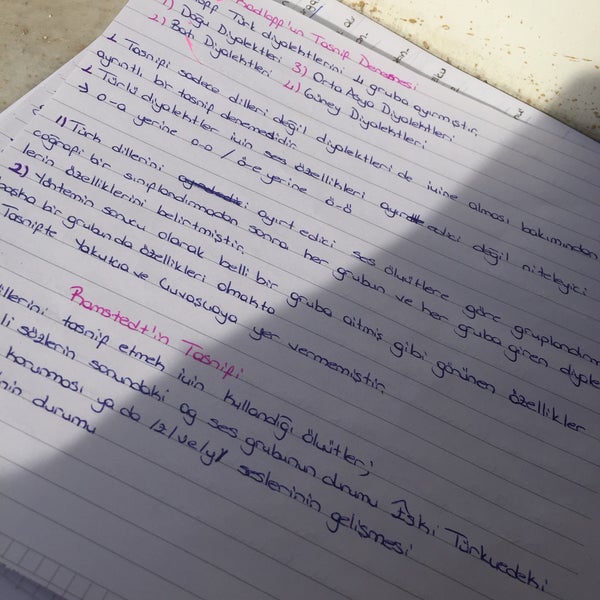 Radloff'un Tasnif Denemesi
Türk diyalektlerini 4 gruba ayırmıştır.
1) Doğu Diyalektleri 3) Orta Asya Diyalektleri
2) Batı Diyalektleri 4) Güney Diyalektleri
Tasnifi sadece dilleri değil diyalektleri de içine alması bakımından
ayrıntılı bir tasnif denemesidir.
Türlü diyalektler için ses özellikleri ayırd edici değil niteleyici
→ o-a yerine o-o / ö-e yerine ö-ö
1) Türk dillerini ayırt edici ses ölçütlere göre gruplandırm
coğrafi bir sınıflandırmadan sonra her grubun ve her gruba giren diyale
lerin özelliklerini belirtmiştir.
2) Yöntemin sonucu olarak belli bir gruba aitmiş gibi görünen özellikler
başka bir grubunda özellikleri olmakta
Tasnifte Yakutca ve Çuvaşcaya yer vermemiştir.
Ramstedt'in Tasnifi
dillerini tasnif etmek için kullandığı ölçütler;
li sözlerin sonundaki ag ses grubunun durumu Eski Türkçedeki
korunması ya da /z/ ve /y/ seslerinin gelişmesi
nin durumu